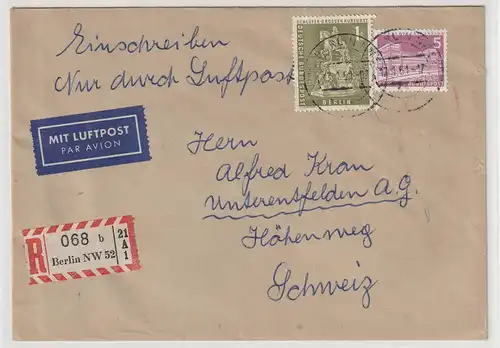 Einschreiben
Nur durch Luftpost
MIT LUFTPOST
PAR AVION
1
BERLIN
5
Herrn
Alfred Kran
Unterentfelden A.G.
Höhenweg
Schweiz
R
068 b
Berlin NW 52
21
A
1